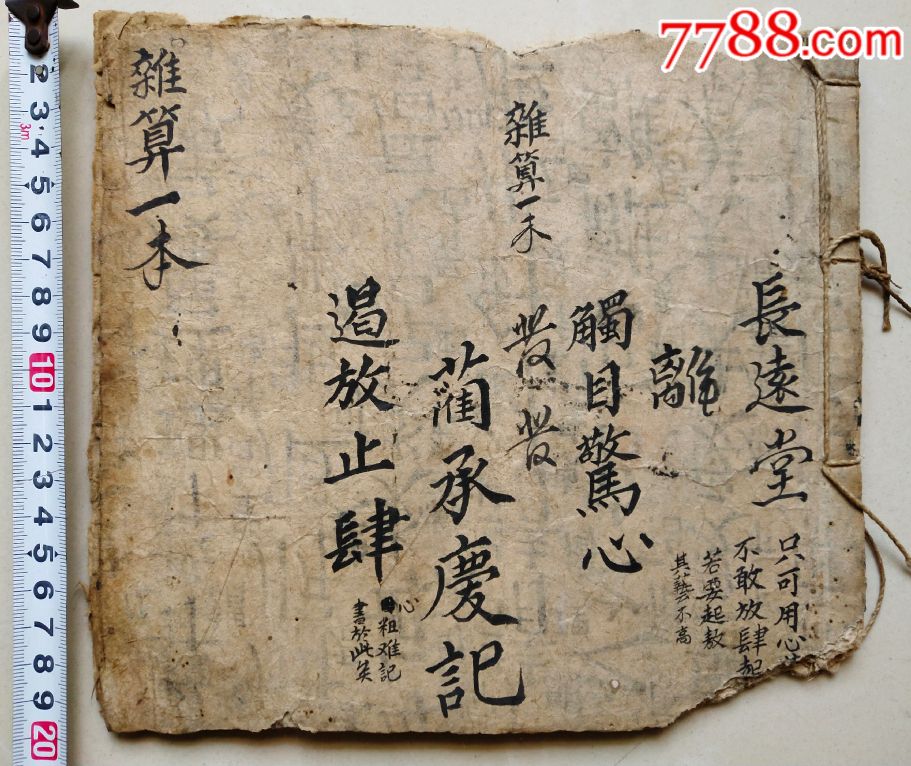 7788.com
長遠堂
只可用心
不敢放肆起
若要起敖
其藝不高
離
觸目驚心
雜算一本
藺承慶記
遏放止肆
心粗难記
書於此矣
雜算一本
2
3
3m
4
5
6
7
8
9
10
1
2
3
4
5
6
7
8
9
20